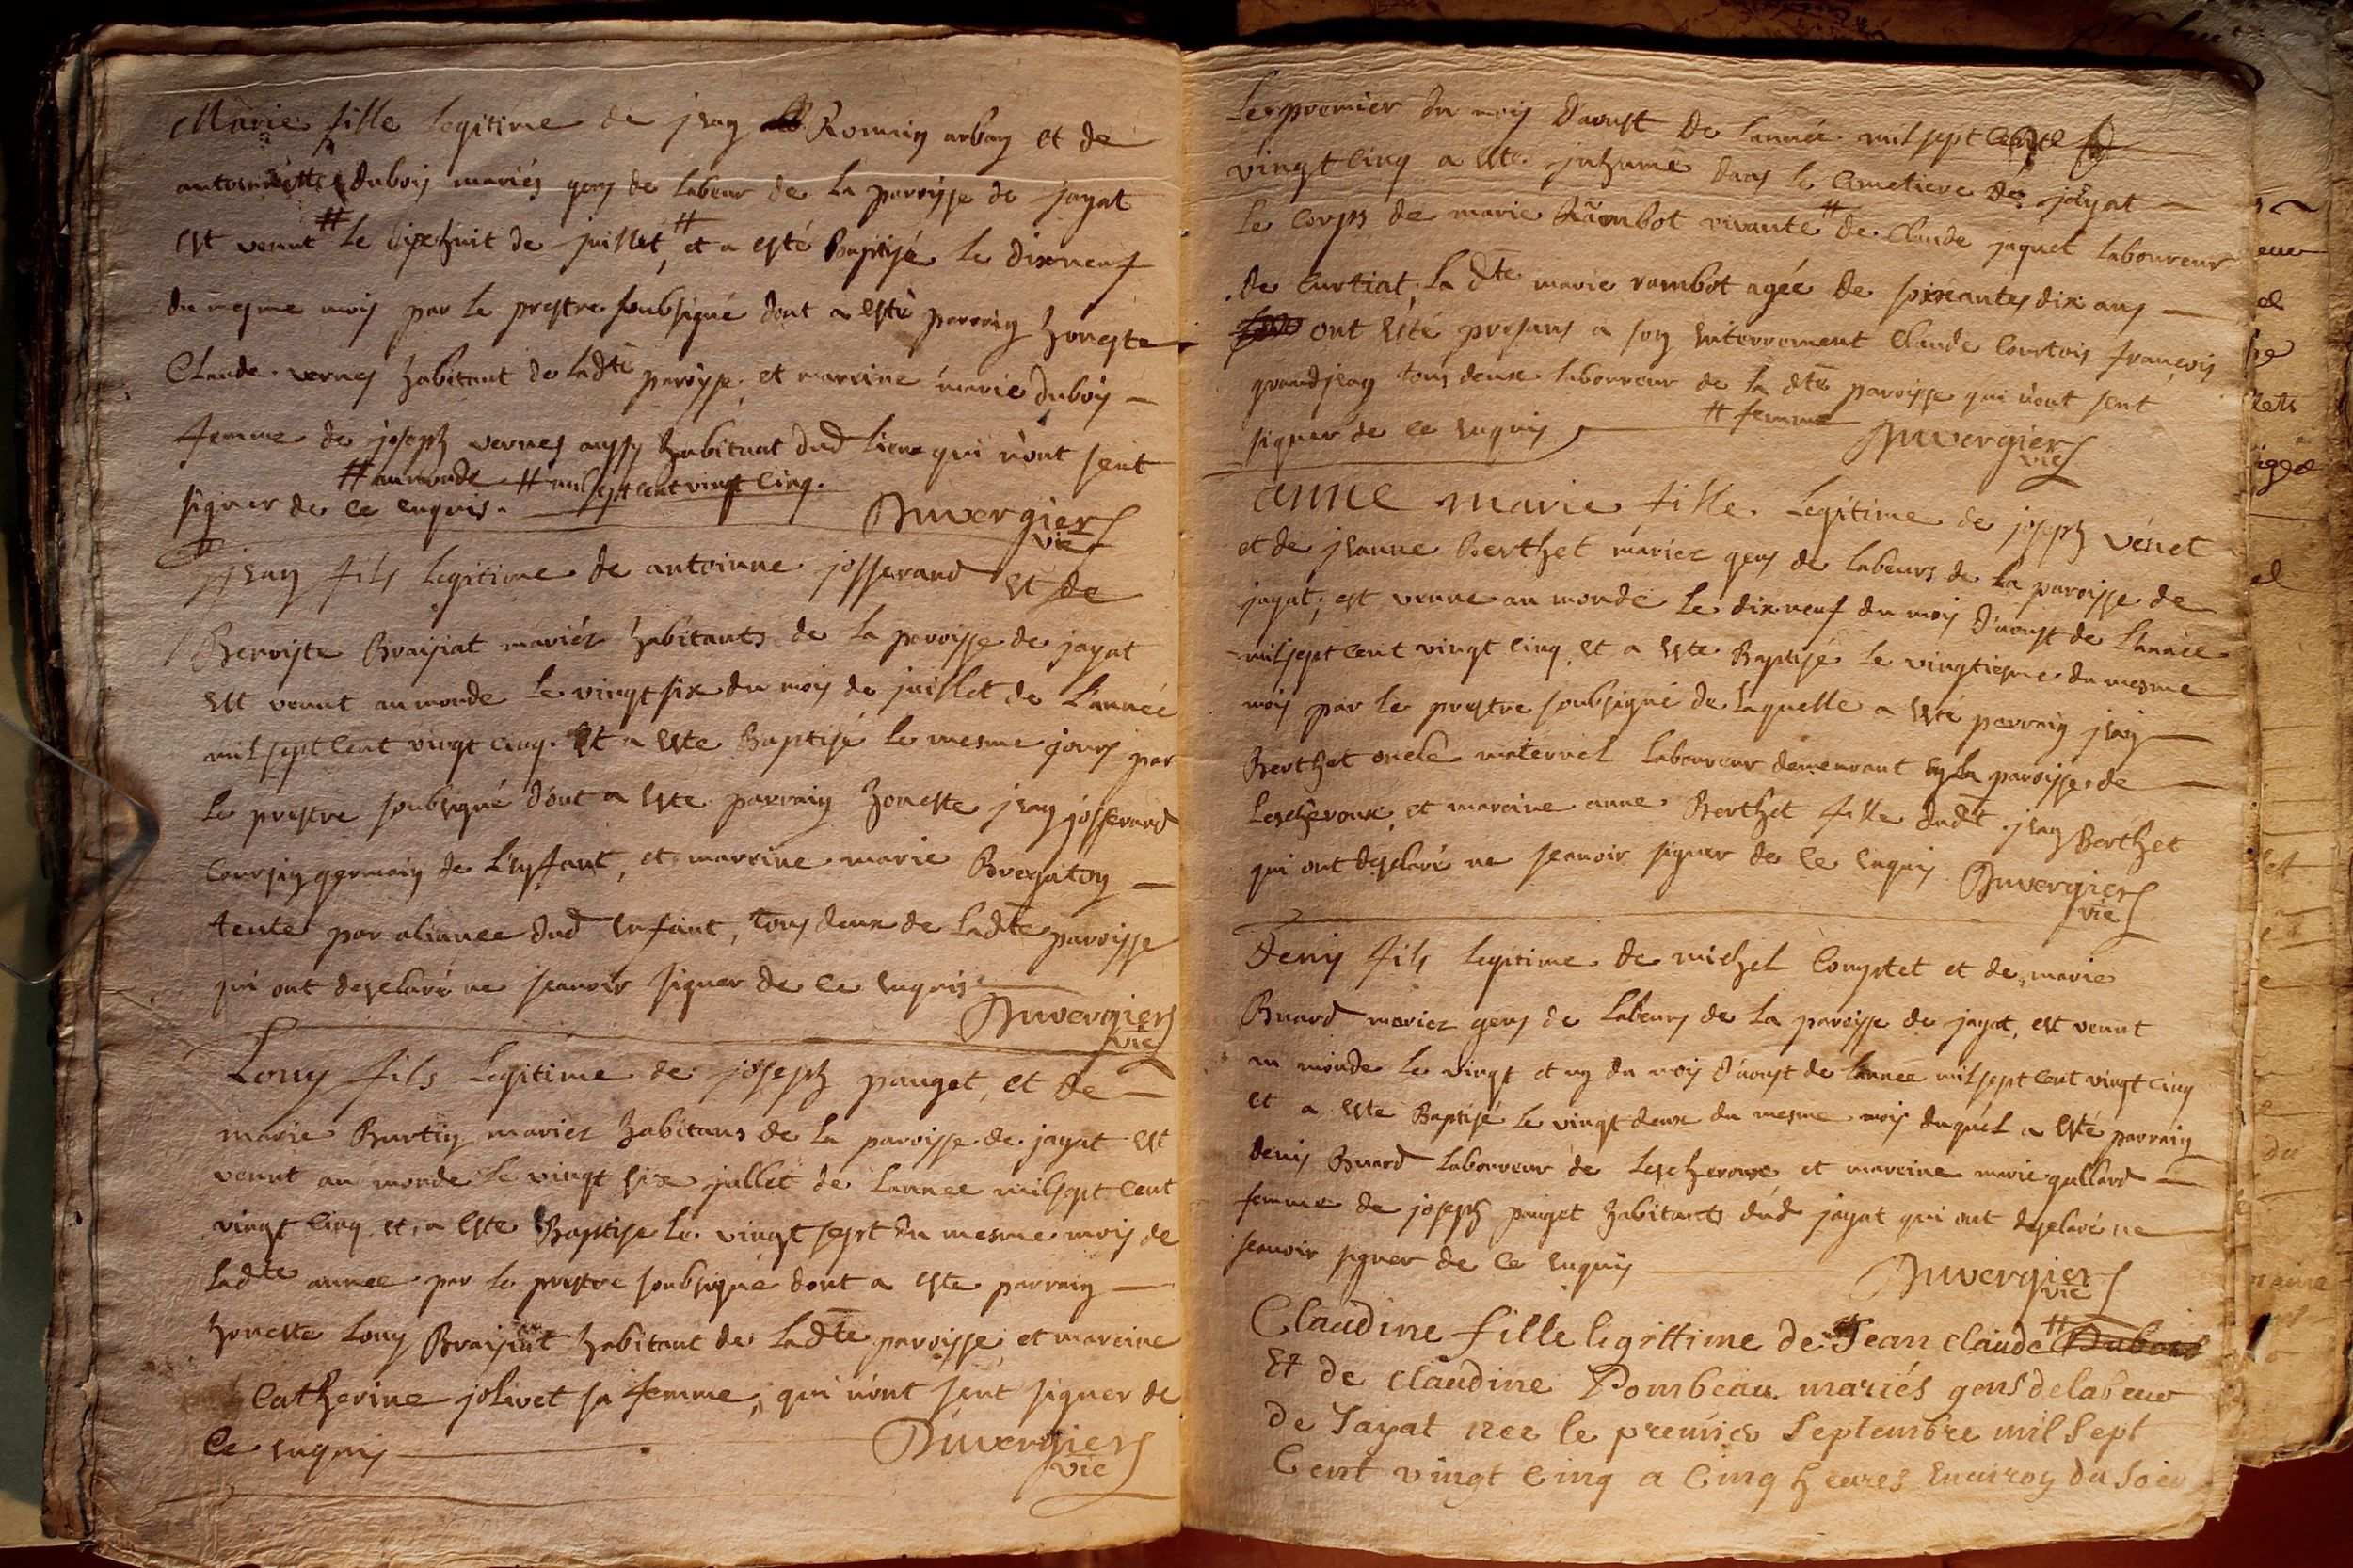 Marie fille legitime de jean Romain arban et de
antoinette dubois mariés gens de labeur de la paroisse de jayat
est venut # le dixhuit de juillet, # et a esté Baptisé le dixneuf
du mesme mois par le prestre soubsigné dont a esté parrain honeste
Claude vernes habitant de ladte paroisse, et mareine marie dubois
femme de joseph vernes aussy habitant dud lieux qui n'ont seut
# au monde # mil sept cent vingt cinq.
signer de ce enquis.
Duvergier
vic
jean fils legitime de antoinne josserand et de
Benoiste Braisiat mariéz habitants de la paroisse de jayat
est venut au monde le vingt six du mois de juillet de l'année
mil sept cent vingt cinq. Et a este Baptisé le mesme jours par
le prestre soubsigné dont a este parrain honeste jean josserand
coursin germain de l'enfant, et marrine marie
tente par aliance dud enfant, tous deux de ladte paroisse
qui ont desclaré ne scauoir signer de ce enquis
Duvergier
vic
Louys fils legitime de joseph pauget, et de
marie Burtin mariez habitans de la paroisse de jayat est
venut au monde le vingt six jullet de lannee mil sept cent
vingt cinq et a este Baptise le vingt sept du mesme mois de
ladte annee par le prestre soubsigné dont a este parrain
honeste Louy Braisiat habitant de ladte paroisse et mareine
Catherine jolivet sa femme, qui n'ont seut signer de
ce enquis
Duvergier
vic
Le premier du mois d'aoust de l'année mil sept cent
vingt cinq a este inhumé dans le cimetiere de jayat
le corps de marie Rambot vivante # de Claude jaquet laboureur
de Curtiat, la dte marie rambot agée de soixantes dix ans
ont esté presans a son enterrement Claude Courtois françois
grandjean tous deux laboureur de la dte paroisse qui n'ont seut
signer de ce enquis # femme
Duvergier
vic
anne marie fille legitime de joseph vénet
et de jeanne Berthet mariez gens de labeurs de la paroisse de
jayat, est venue au monde le dixneuf du mois d'aoust de l'année
mil sept cent vingt cinq, et a este Baptisé le vingtiesme du mesme
mois par le prestre soubsigné de laquelle a esté parrain jean
Berthet oncle maternel laboureur demeurant en la paroisse de
Lescheroux, et mareine anne Berthet fille dudt jean Berthet
qui ont desclaré ne scauoir signer de ce enquis
Duvergier
vic
Denis fils legitime de michel Comptet et de marie
Buard mariez gens de labeurs de la paroisse de jayat, est venut
au monde le vingt et un du mois d'aoust de lannee mil sept cent vingt cinq
et a este Baptisé le vingt deux du mesme mois duquel a esté parrain
denis Buard laboureur de Lescheroux, et mareine marie gallard
femme de joseph pauget habitants dud jayat qui ont desclaré ne
scauoir signer de ce enquis
Duvergier
vic
Claudine fille legittime de Jean claude # Dubois
Et de claudine Pombeau mariés gens de labeur
de Jayat née le premier Septembre mil Sept
Cent vingt cinq a Cinq heures enuiron du Soir